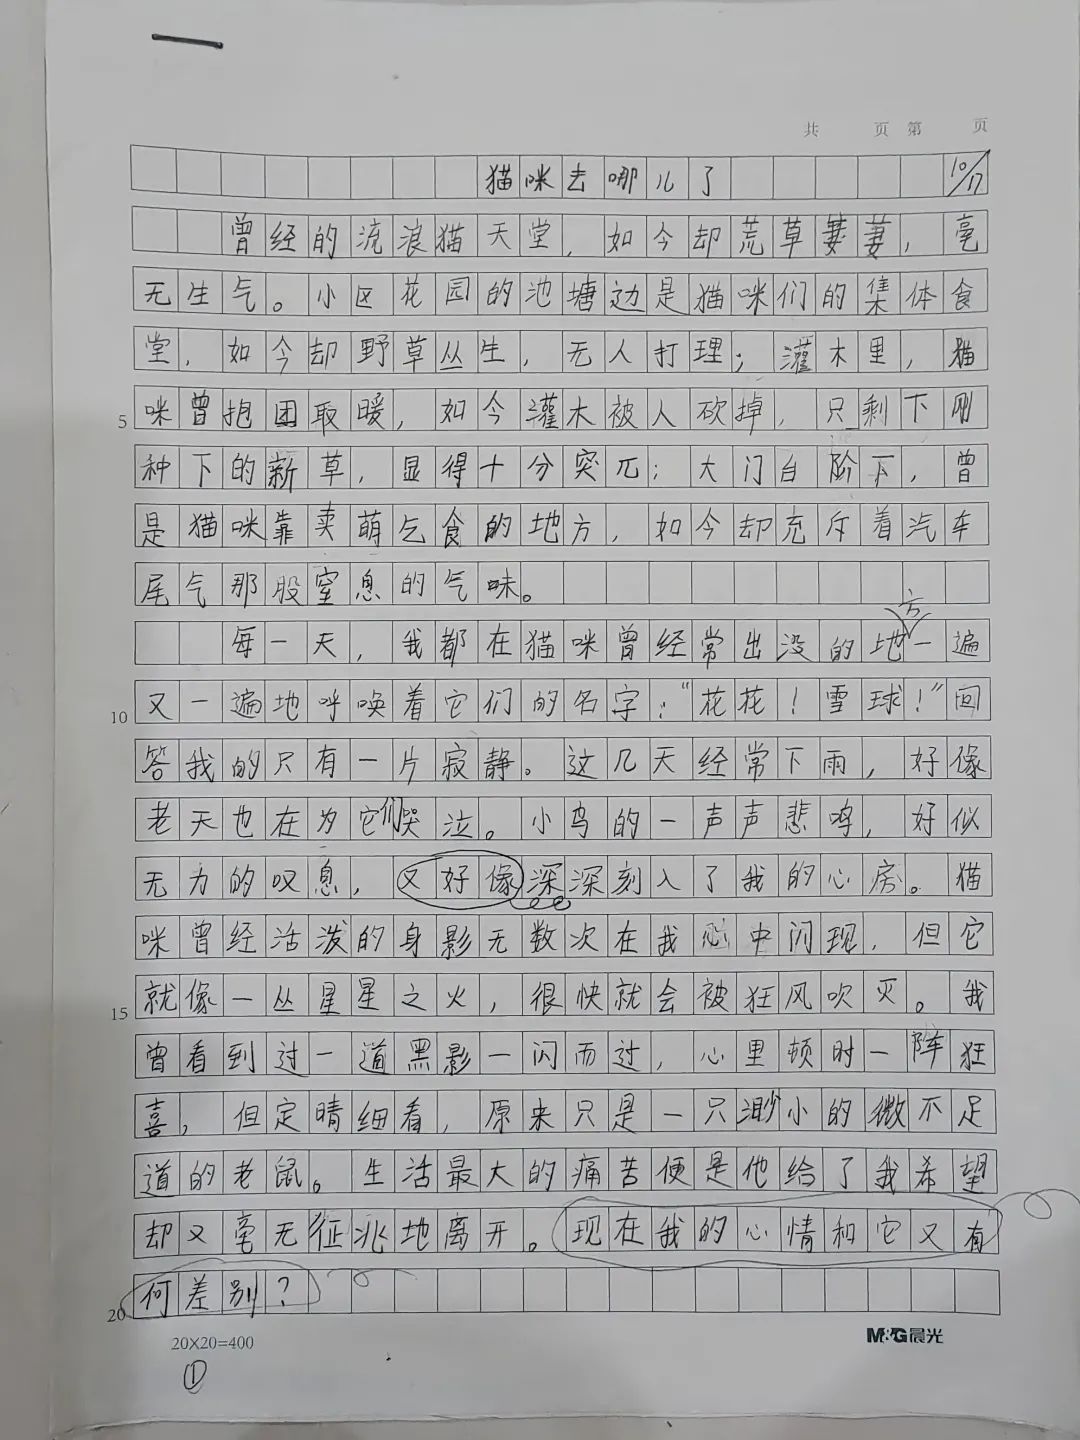 共 页 第 页
猫咪去哪儿了 10/17
曾经的流浪猫天堂，如今却荒草萋萋，毫
无生气。小区花园的池塘边是猫咪们的集体食
堂，如今却野草丛生，无人打理；灌木里，猫
5 咪曾抱团取暖，如今灌木被人砍掉，只剩下刚
种下的新草，显得十分突兀；大门台阶下，曾
是猫咪靠卖萌乞食的地方，如今却充斥着汽车
尾气那股窒息的气味。
每一天，我都在猫咪曾经常出没的地方一遍
10 又一遍地呼唤着它们的名字：“花花！雪球！”回
答我的只有一片寂静。这几天经常下雨，好像
老天也在为它们哭泣。小鸟的一声声悲鸣，好似
无力的叹息，又好像深深刻入了我的心房。猫
咪曾经活泼的身影无数次在我心中闪现，但它
15 就像一丛星星之火，很快就会被狂风吹灭。我
曾看到过一道黑影一闪而过，心里顿时一阵狂
喜，但定睛细看，原来只是一只渺小的微不足
道的老鼠。生活最大的痛苦便是他给了我希望
却又毫无征兆地离开。现在我的心情和它又有
20 何差别？
20×20=400
M&G晨光
①